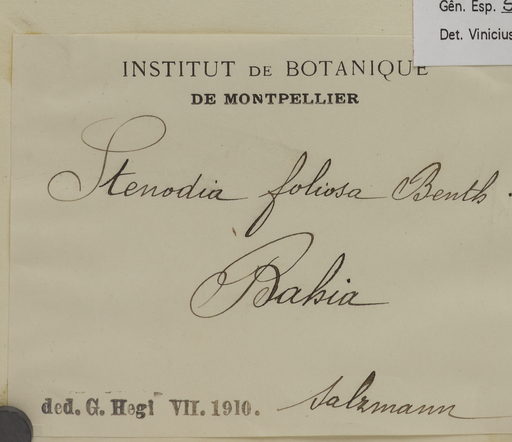 Gên. Esp. S
Det. Vinicius
INSTITUT DE BOTANIQUE
DE MONTPELLIER
Stenodia foliosa Benth.
Bahia
ded. G. Hegi VII. 1910.
Salzmann